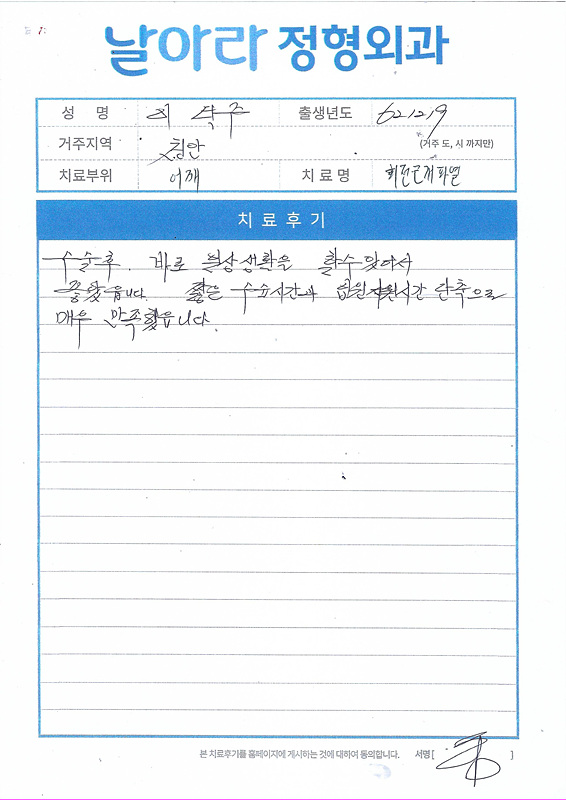 날아라 정형외과
성 명 이 탁주 출생년도 62.12.19
거주지역 천안 (거주 도, 시 까지만)
치료부위 어깨 치 료 명 회전근개파열
치 료 후 기
수술후. 바로 일상생활을 할수있어서
좋았습니다. 짧은 수술시간과 입원 시간 단축으로
매우 만족했습니다.
본 치료후기를 홈페이지에 게시하는 것에 대하여 동의합니다. 서명 [ ]